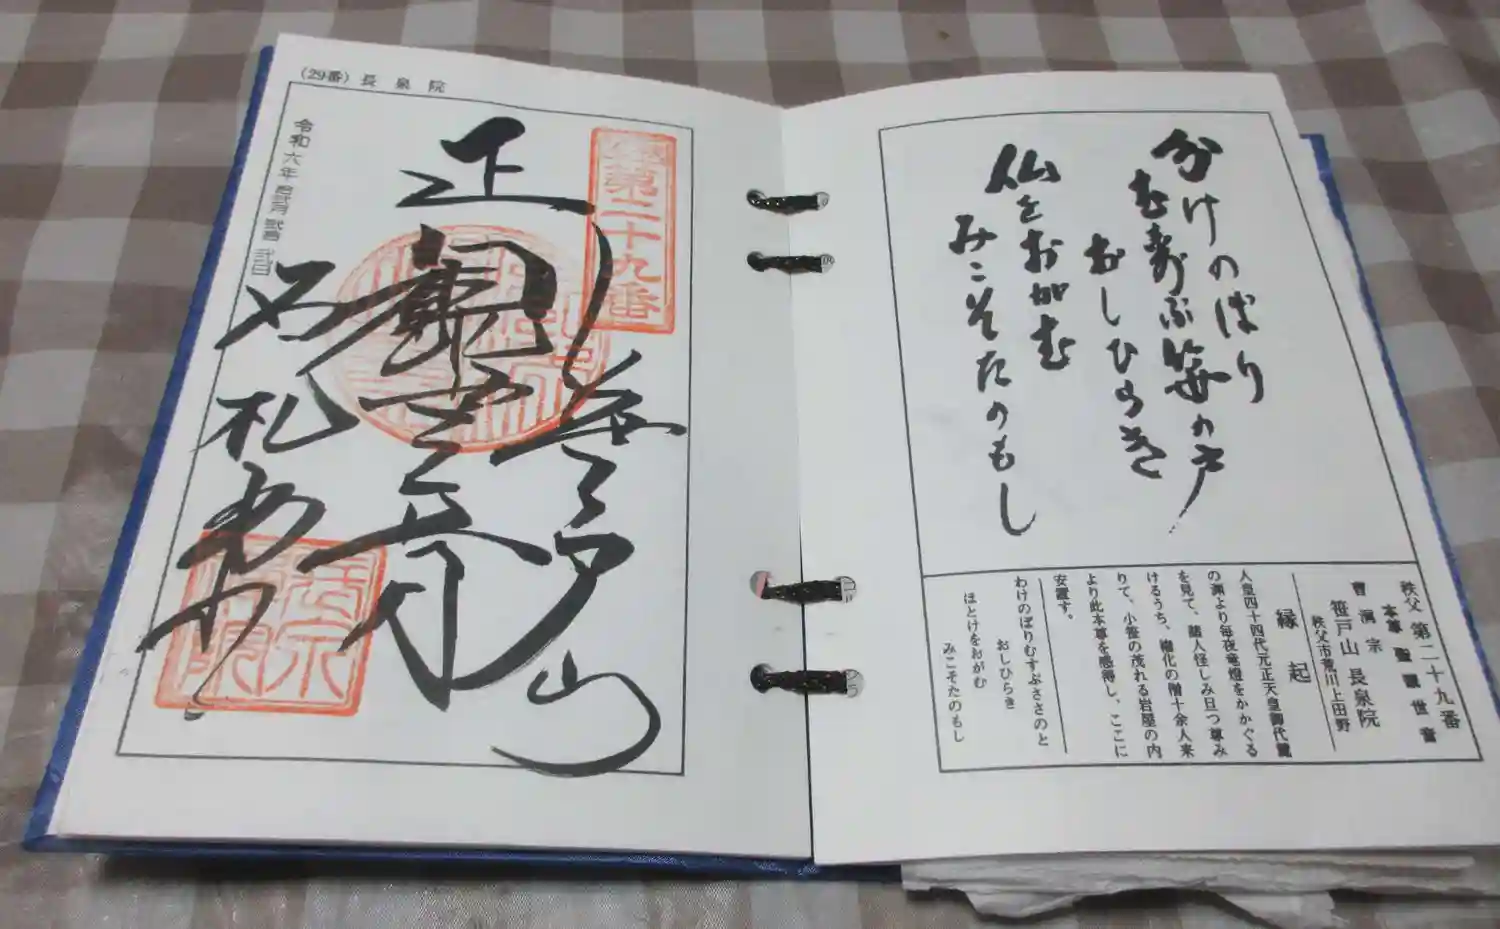 分けのぼり
むすぶ笹の戸
おしひらき
仏をおがむ
みこそたのもし
秩父 第二十九番
本尊 聖観世音
曹洞宗
笹戸山 長泉院
秩父市荒川上田野
縁起
人皇四十四代元正天皇御代龍
の渕より毎夜竜燈をかかぐる
を見て、諸人怪しみ且つ尊み
けるうち、権化の僧十余人来
りて、小笹の茂れる岩屋の内
より此本尊を感得し、ここに
安置す。
わけのぼりむすぶささのと
おしひらき
ほとけをおがむ
みこそたのもし
(29番) 長泉院
第二十九番
笹戸山
正観世音
令和六年